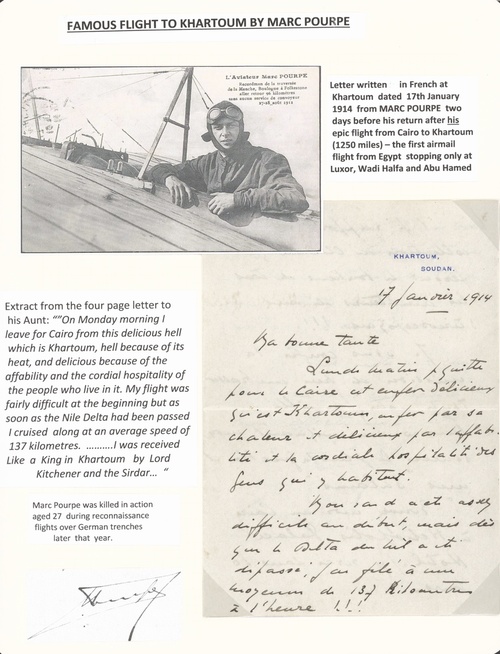 FAMOUS FLIGHT TO KHARTOUM BY MARC POURPE
L'Aviateur Marc POURPE
Recordman de la traversée
de la Manche, Boulogne à Folkestone
aller retour
sans aucun service de convoyeur
27-28 août 1912
Letter written in French at
Khartoum dated 17th January
1914 from MARC POURPE two
days before his return after his
epic flight from Cairo to Khartoum
(1250 miles) – the first airmail
flight from Egypt stopping only at
Luxor, Wadi Halfa and Abu Hamed
KHARTOUM,
SOUDAN.
17 Janvier 1914
Ma bonne tante
Lundi matin je quitte
pour le Caire cet enfer délicieux
qu'est Khartoum, enfer par sa
chaleur et délicieux par l'affabi-
lité et la cordiale hospitalité des
gens qui y habitent.
Mon raid a été assez
difficile au début, mais dès
que le Delta du Nil a été
dépassé, j'ai filé à une
moyenne de 137 Kilomètres
à l'heure !!!
Extract from the four page letter to
his Aunt: ""On Monday morning I
leave for Cairo from this delicious hell
which is Khartoum, hell because of its
heat, and delicious because of the
affability and the cordial hospitality of
the people who live in it. My flight was
fairly difficult at the beginning but as
soon as the Nile Delta had been passed
I cruised along at an average speed of
137 kilometres. ..........I was received
Like a King in Khartoum by Lord
Kitchener and the Sirdar... "
Marc Pourpe was killed in action
aged 27 during reconnaissance
flights over German trenches
later that year.